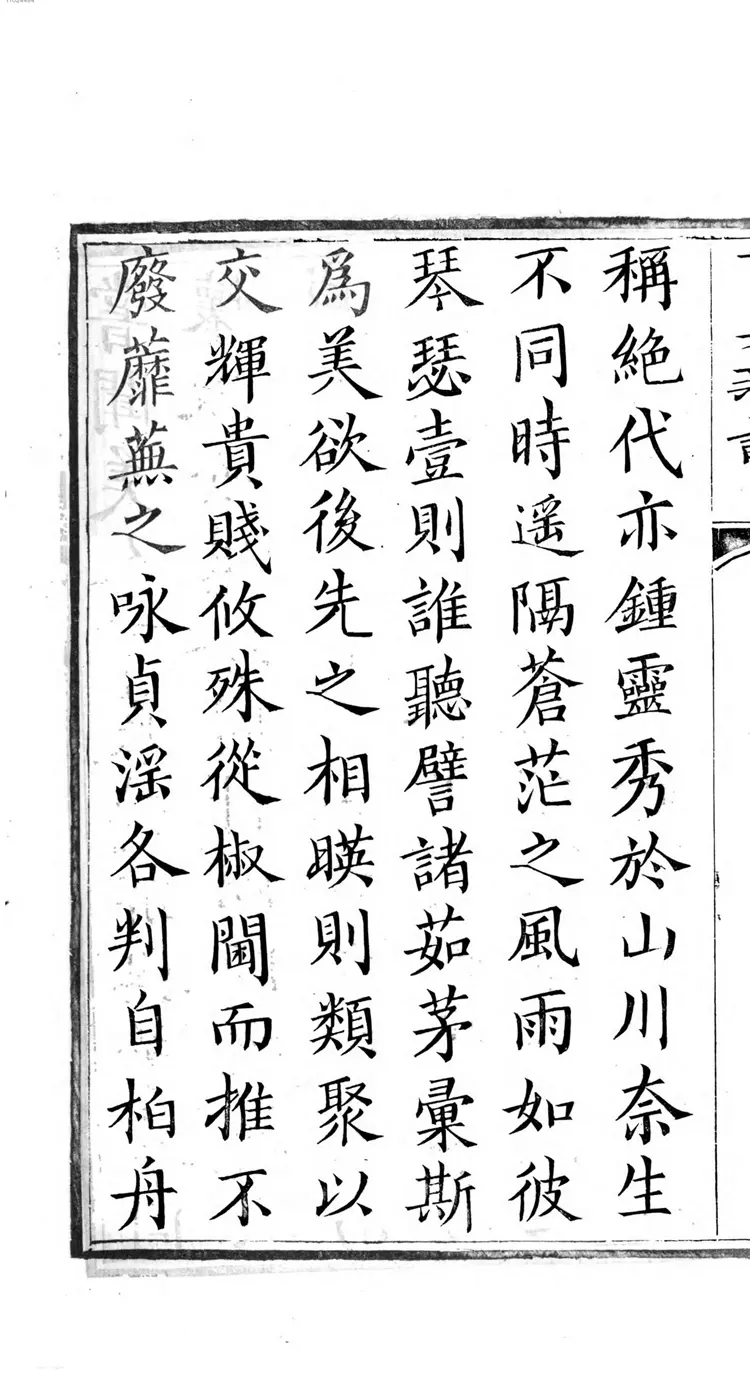 稱絕代亦鍾靈秀於山川奈生
不同時遥隔蒼茫之風雨如彼
琴瑟壹則誰聽譬諸茹茅彙斯
爲美欲後先之相暎則類聚以
交輝貴賤攸殊從椒闈而推不
廢蘼蕪之咏貞淫各判自柏舟